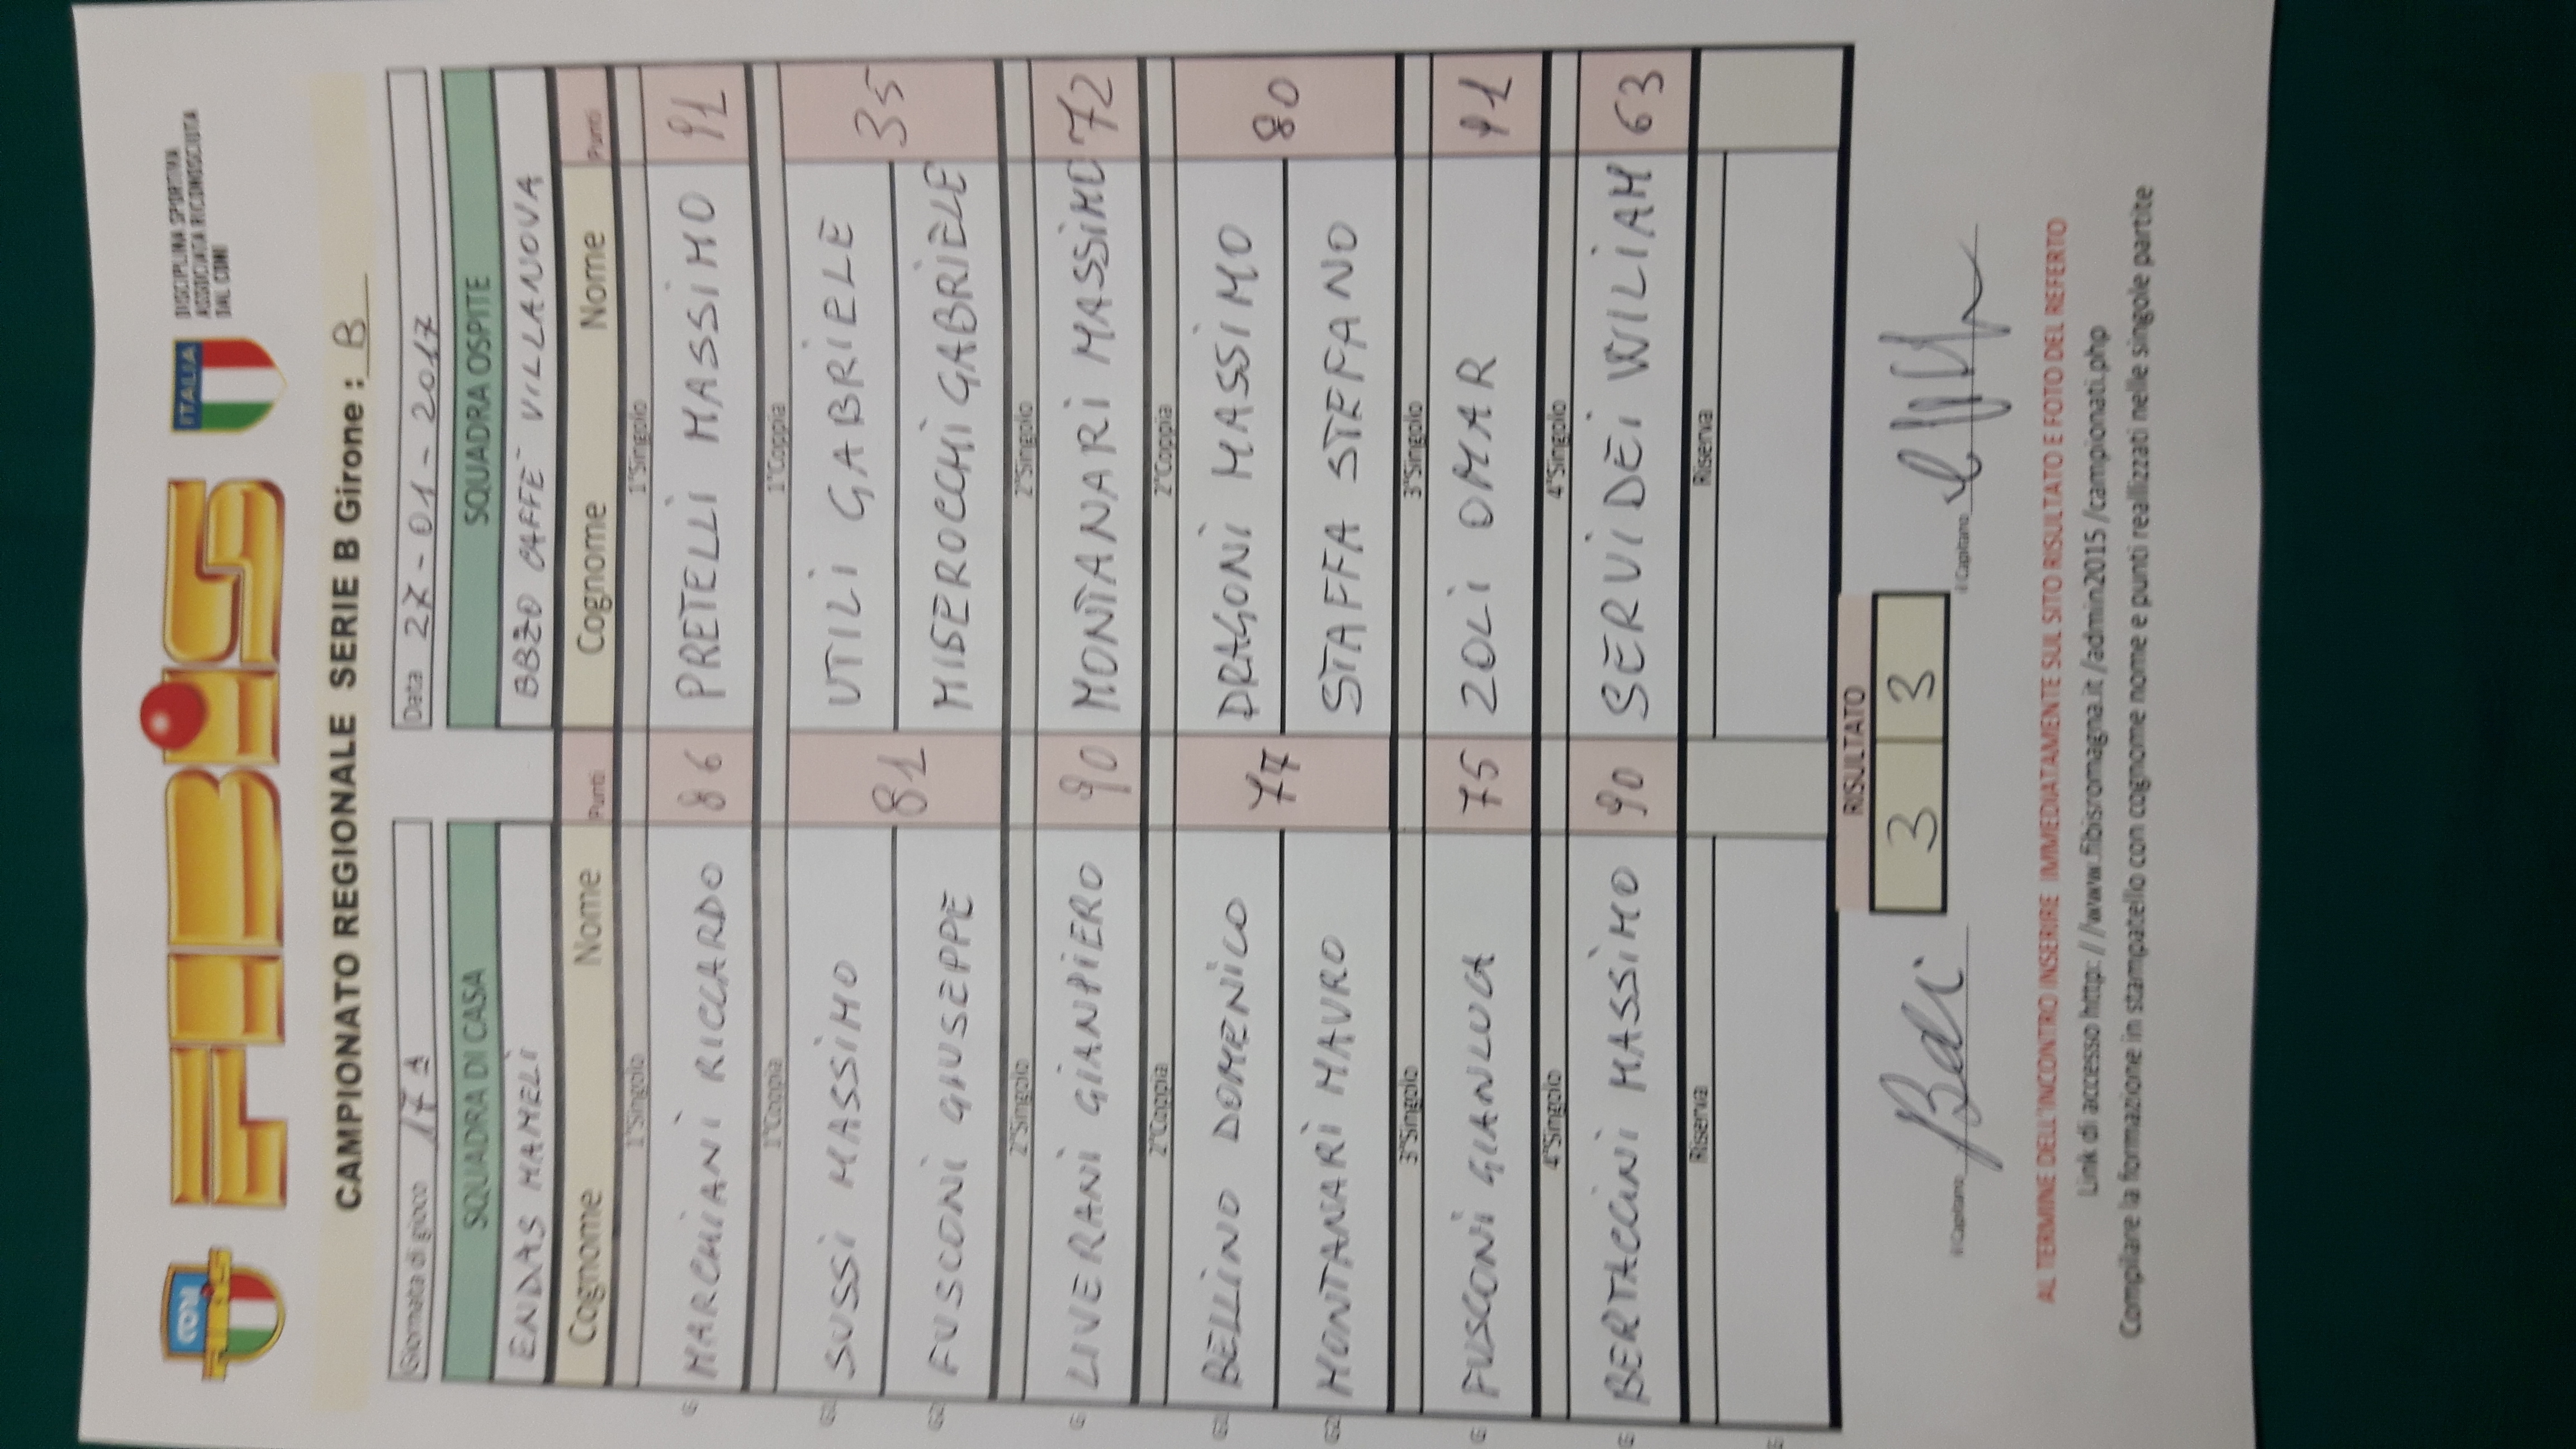 CONI
FIBIS
FIBiS
ITALIA
DISCIPLINA SPORTIVA
ASSOCIATA RICONOSCIUTA
DAL CONI
CAMPIONATO REGIONALE SERIE B Girone : B
Giornata di gioco 17 A
Data 27-01-2017
SQUADRA DI CASA SQUADRA OSPITE
ENDAS MAMELI BBZO CAFFE VILLANOVA
Cognome Nome Punti Cognome Nome Punti
1°Singolo 1°Singolo
G MARCHIANI RICCARDO 86 PRETELLI MASSIMO 91
1°Coppia 1°Coppia
G1 SUSSI MASSIMO 81 UTILI GABRIELE 35
G2 FUSCONI GIUSEPPE MISEROCCHI GABRIELE
2°Singolo 2°Singolo
G LIVERANI GIANPIERO 90 MONTANARI MASSIMO 72
2°Coppia 2°Coppia
G1 BELLINO DOMENICO 77 DRAGONI MASSIMO 80
G2 MONTANARI MAURO STAFFA STEFANO
3°Singolo 3°Singolo
G FUSCONI GIANLUCA 75 ZOLI OMAR 91
4°Singolo 4°Singolo
G BERTACCINI MASSIMO 90 SERVIDEI WILIAM 63
Riserva Riserva
RISULTATO
3 3
Il Capitano Il Capitano
AL TERMINE DELL'INCONTRO INSERIRE IMMEDIATAMENTE SUL SITO RISULTATO E FOTO DEL REFERTO
Link di accesso http://www.fibisromagna.it/admin2015/campionati.php
Compilare la formazione in stampatello con cognome nome e punti reallizzati nelle singole partite